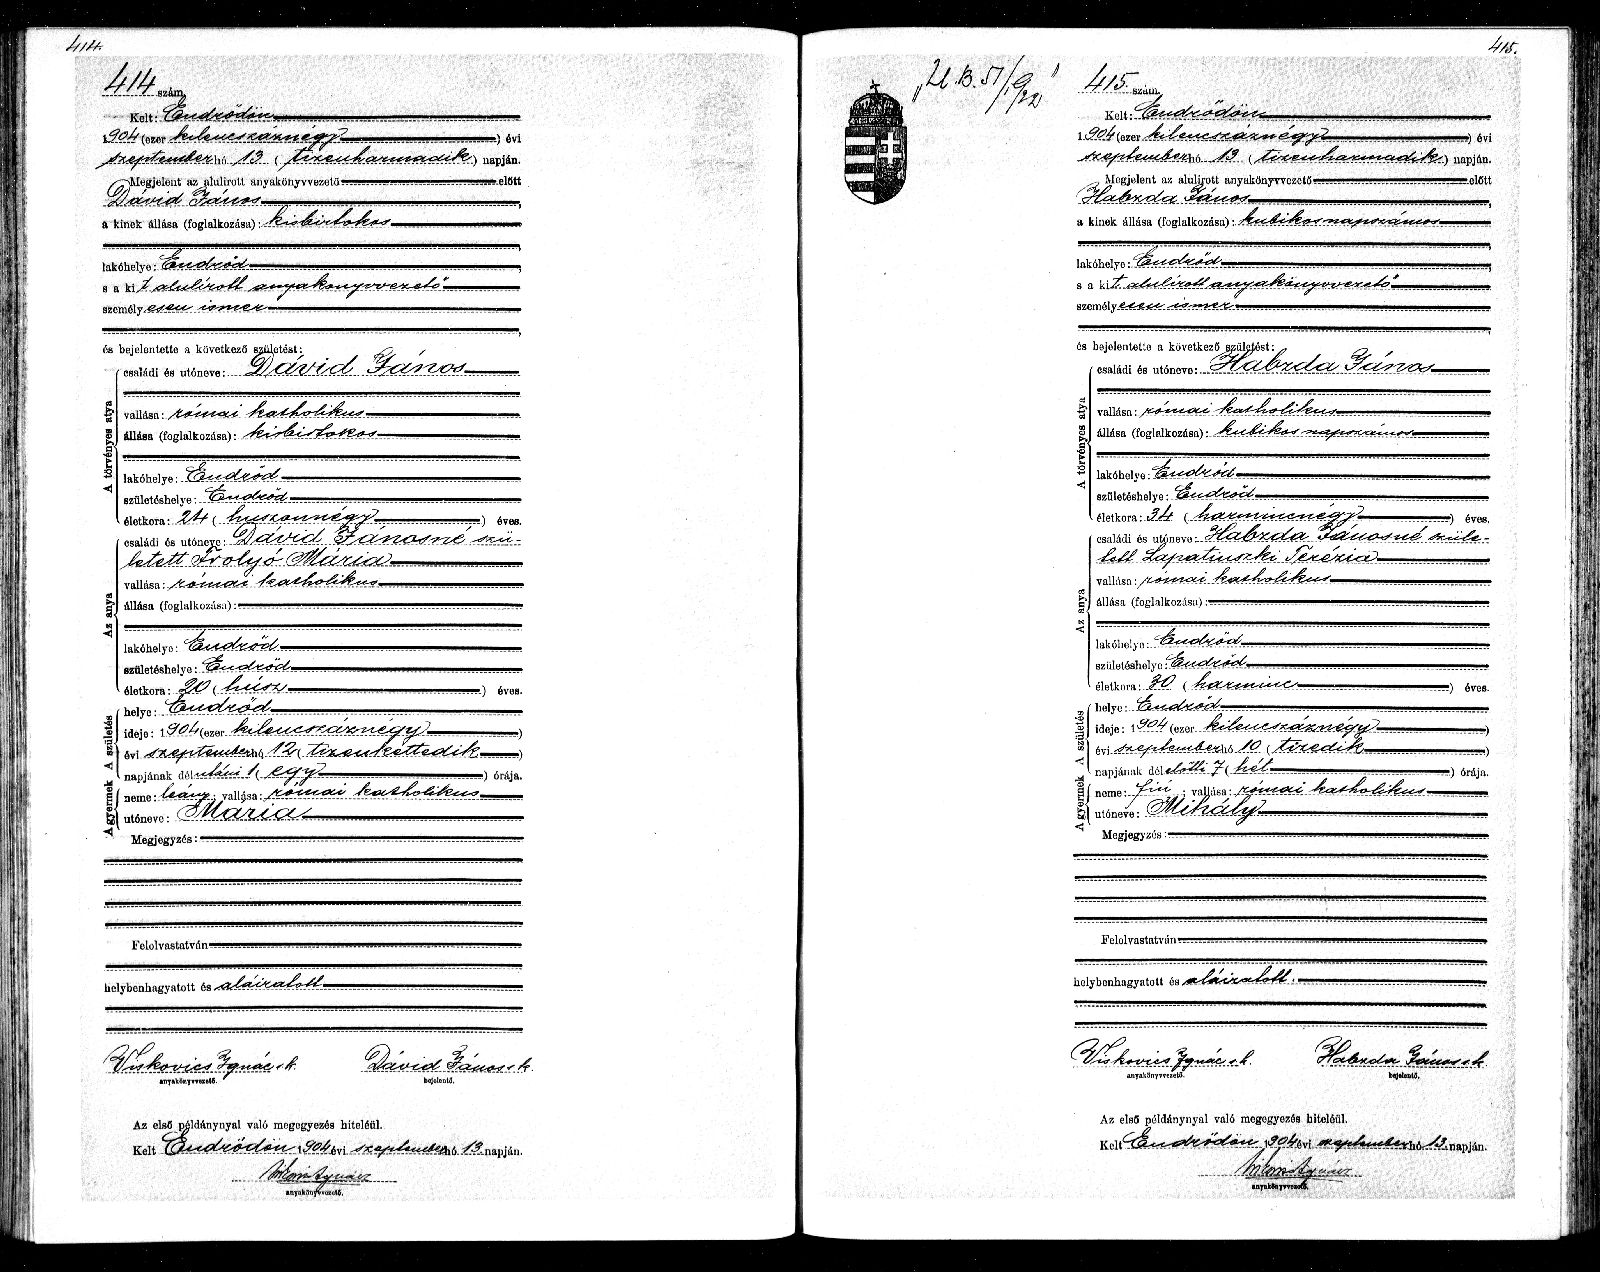 414.
414 szám.
Kelt: Endrődön
1904 (ezer kilencszáznégy) évi
szeptember hó 13 (tizenharmadik) napján.
Megjelent az alulirott anyakönyvvezető előtt
Dávid János,
a kinek állása (foglalkozása): kisbirtokos
lakóhelye: Endrőd
s a kit alulírott anyakönyvvezető
személyesen ismer
és bejelentette a következő születést:
A törvényes atya
családi és utóneve: Dávid János
vallása: római katholikus
állása (foglalkozása): kisbirtokos
lakóhelye: Endrőd
születéshelye: Endrőd
életkora: 24 (huszonnégy) éves.
Az anya
családi és utóneve: Dávid Jánosné szü-
letett Frolyó Mária
vallása: római katholikus
állása (foglalkozása):
lakóhelye: Endrőd
születéshelye: Endrőd
életkora: 20 (húsz) éves.
A születés
helye: Endrőd
ideje: 1904 (ezer kilencszáznégy)
évi szeptember hó 12 (tizenkettedik)
napjának délutáni 1 (egy) órája.
A gyermek
neme: leány; vallása: római katholikus
utóneve: Mária
Megjegyzés:
Felolvastatván
helybenhagyatott és aláíratott
Viskovics Ignác s. k. Dávid János s. k.
anyakönyvvezető. bejelentő.
Az első példánynyal való megegyezés hiteléül.
Kelt Endrődön 1904 évi szeptember hó 13 napján.
Viskovics Ignácz
anyakönyvvezető.
415.
415. szám.
Kelt: Endrődön
1904 (ezer kilencszáznégy) évi
szeptember hó 13 (tizenharmadik) napján.
Megjelent az alulirott anyakönyvvezető előtt
Habzda János,
a kinek állása (foglalkozása): kubikos napszámos
lakóhelye: Endrőd
s a kit alulírott anyakönyvvezető
személyesen ismer
és bejelentette a következő születést:
A törvényes atya
családi és utóneve: Habzda János
vallása: római katholikus
állása (foglalkozása): kubikos napszámos
lakóhelye: Endrőd
születéshelye: Endrőd
életkora: 34 (harmincnégy) éves.
Az anya
családi és utóneve: Habzda Jánosné szüle-
tett Lapatinszki Terézia
vallása: római katholikus
állása (foglalkozása):
lakóhelye: Endrőd
születéshelye: Endrőd
életkora: 30 (harminc) éves.
A születés
helye: Endrőd
ideje: 1904 (ezer kilencszáznégy)
évi szeptember hó 10 (tizedik)
napjának délelőtti 7 (hét) órája.
A gyermek
neme: fiú; vallása: római katholikus
utóneve: Mihály
Megjegyzés:
Felolvastatván
helybenhagyatott és aláíratott.
Viskovics Ignác s. k. Habzda János s. k.
anyakönyvvezető. bejelentő.
Az első példánynyal való megegyezés hiteléül.
Kelt Endrődön 1904 évi szeptember hó 13 napján.
Viskovics Ignácz
anyakönyvvezető.